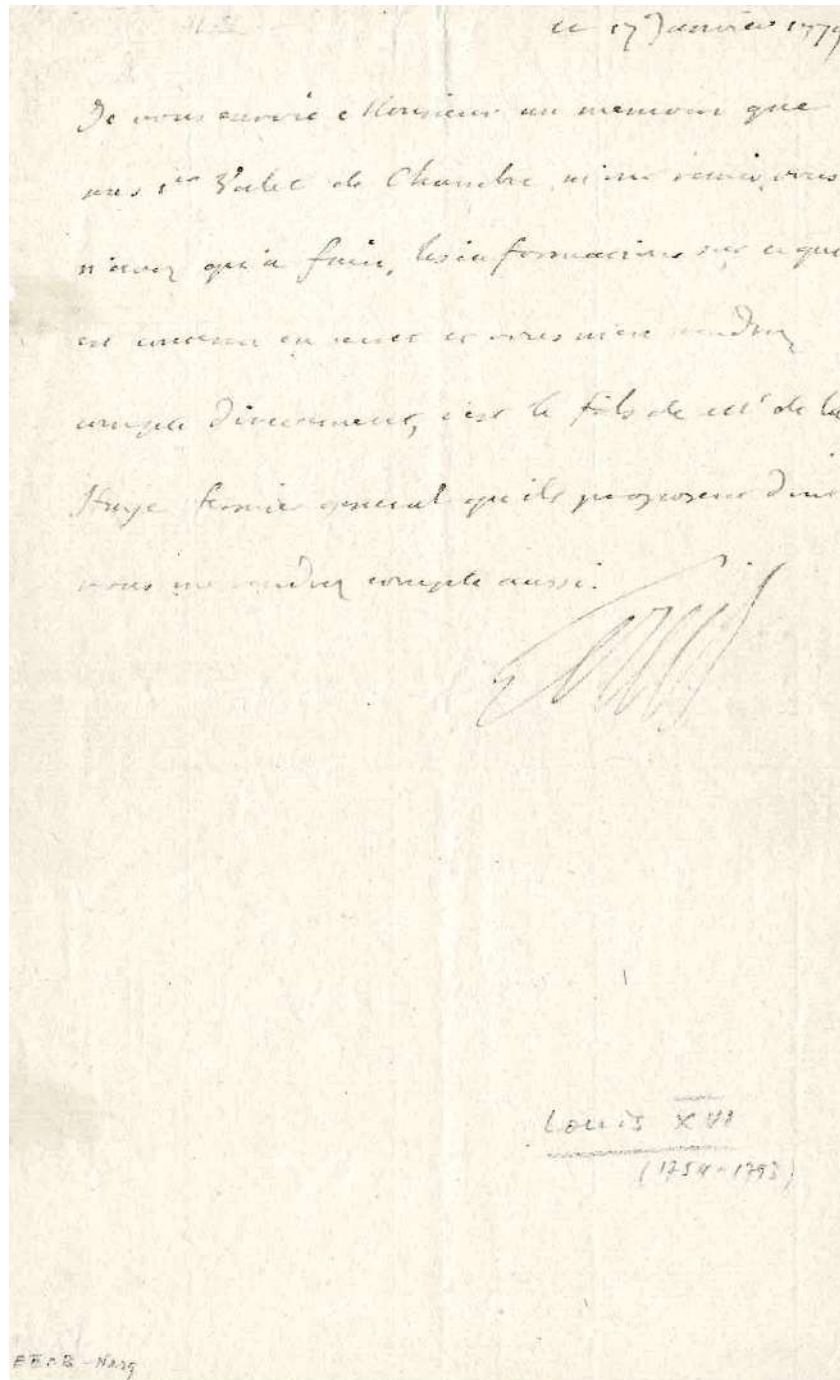 ce 17 Janvier 1779
Je vous envoie Monsieur un memoire que
mes 1ers Valet de Chambre m'ont remis, vous
n'avez qu'a faire, les informations sur ce que
est contenu en icelui et vous m'en rendrez
compte directement, c'est le fils de Mr de la
Haye fermier general qu'ils proposent dont
vous me rendrez compte aussi.
Louis
Louis XVI
(1754-1793)